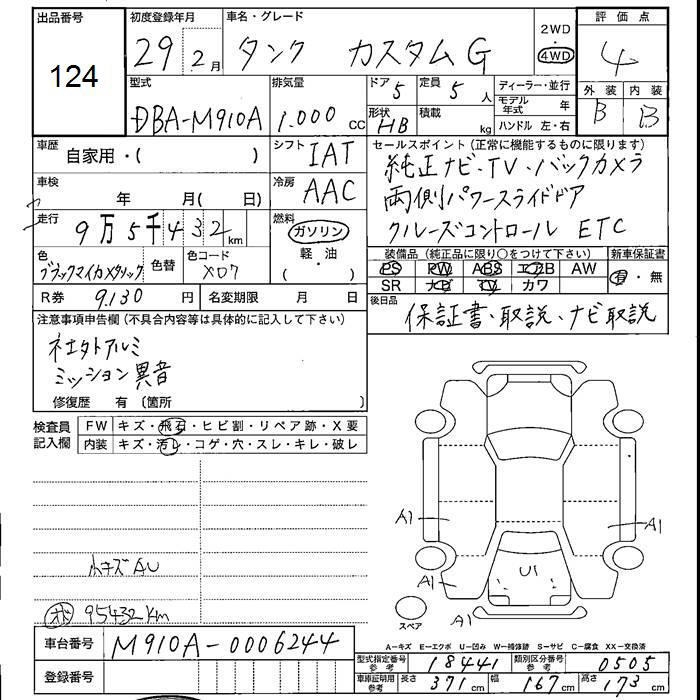 出品番号 124
初度登録年月 29年 2月
車名・グレード タンク カスタムG
2WD 4WD
評価点 4
外装 B 内装 B
型式 DBA-M910A
排気量 1.000 cc
ドア 5 形状 HB
定員 5人 積載 kg
ディーラー・並行
モデル年式 年
ハンドル 左・右
車歴 自家用・( )
シフト IAT
車検 年 月( 日)
冷房 AAC
走行 9万5千432km
燃料 ガソリン 軽・油 ( )
色 ブラックマイカメタリック 色替 色コード X07
R券 9.130 円 名変期限 月 日
セールスポイント(正常に機能するものに限ります)
純正ナビ、TV、バックカメラ
両側パワースライドドア
クルーズコントロール ETC
装備品(純正品に限り○をつけて下さい) 新車保証書
PS PW ABS エアB AW 有・無
SR ナビ TV カワ
後日品 保証書、取説、ナビ取説
注意事項申告欄(不具合内容等は具体的に記入して下さい)
ミッション異音
修復歴 有 〔箇所 〕
検査員記入欄
FW キズ・飛石・ヒビ割・リペア跡・X要
内装 キズ・汚レ・コゲ・穴・スレ・キレ・破レ
A1 A1
小キズAU
A1 U1 A1
95432km
スペア A1
車台番号 M910A-0006244
登録番号
A-キズ E-エクボ U-凹み W-補修跡 S-サビ C-腐食 XX-交換済
型式指定番号 参考 18441 類別区分番号 参考 0505
車庫証明用 参考 長さ 371cm 幅 167cm 高さ 173cm